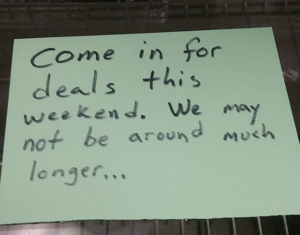 Come in for
deals this
weekend. We may
not be around much
longer...